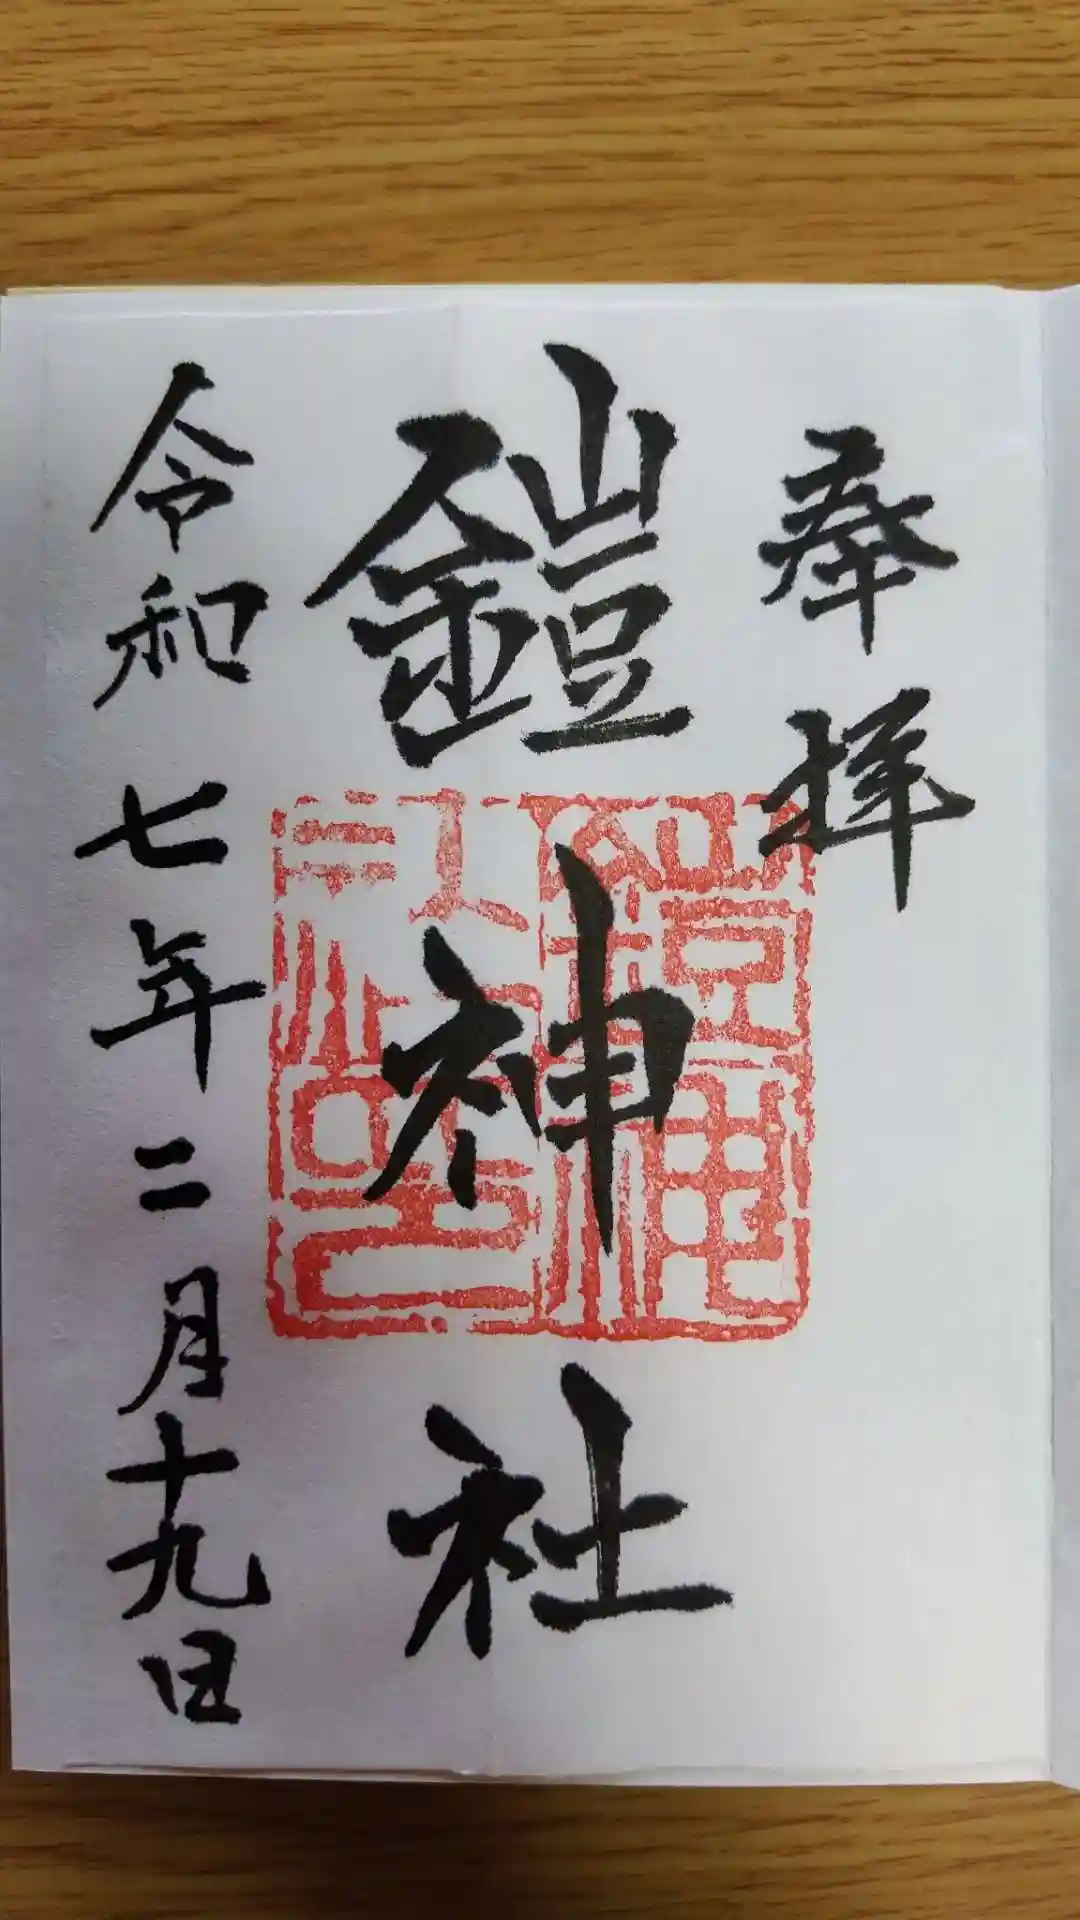 奉拝
鎧神社
令和七年二月十九日
鎧神社印